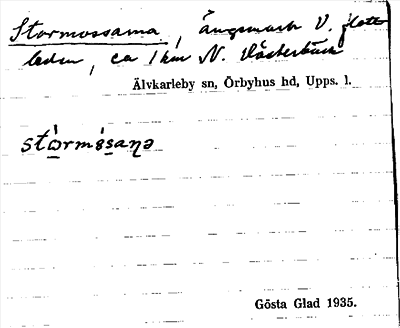 Stormossarna, ängsmark V. flott-
leden, ca 1 km N. Västerbäck
Älvkarleby sn, Örbyhus hd, Upps. l.
stórmòsaṇə
Gösta Glad 1935.